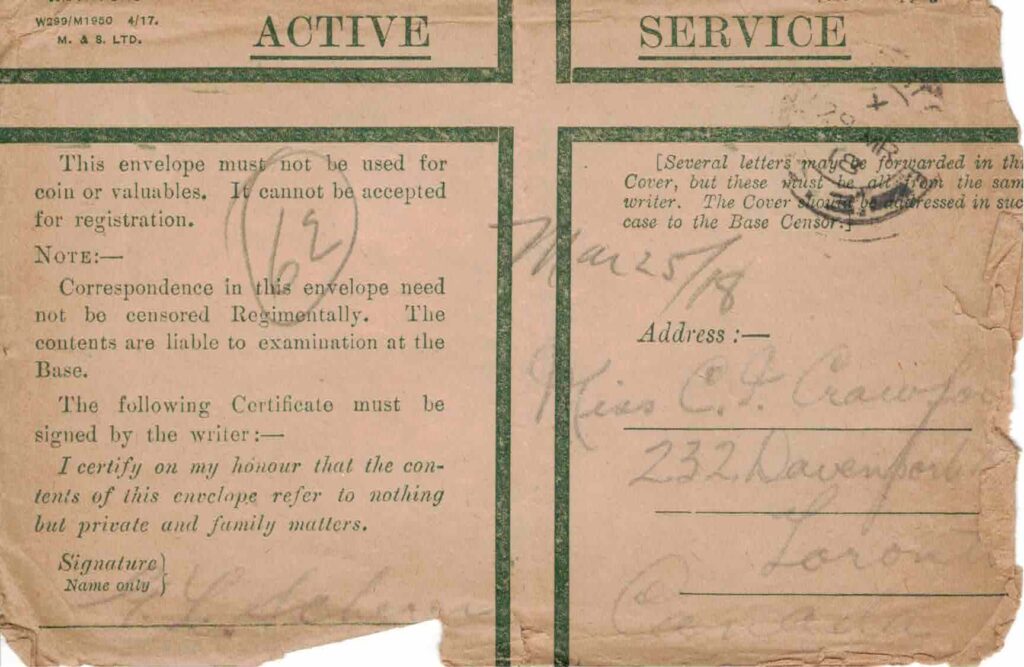 W299/M1950 4/17.
M. & S. LTD.
ACTIVE SERVICE
This envelope must not be used for
coin or valuables. It cannot be accepted
for registration.
NOTE:—
Correspondence in this envelope need
not be censored Regimentally. The
contents are liable to examination at the
Base.
The following Certificate must be
signed by the writer:—
I certify on my honour that the con-
tents of this envelope refer to nothing
but private and family matters.
Signature }
Name only }
[Several letters may be forwarded in th
Cover, but these must be all from the sam
writer. The Cover should be addressed in suc
case to the Base Censor.]
29 MR
18
Mar 25/18
Address :—
Miss C. Crawfor
232 Davenport
Toront
Canada